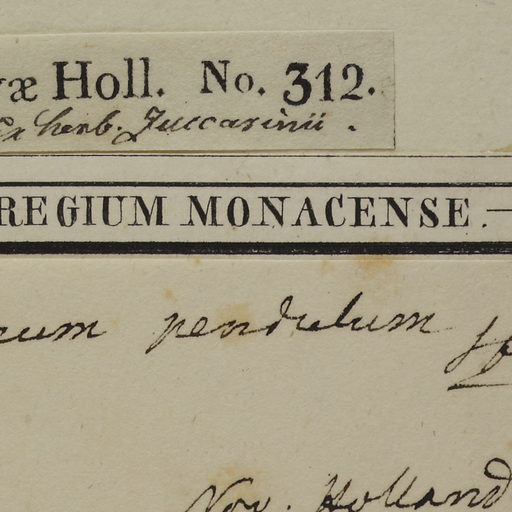 væ Holl. No. 312.
Ex herb. Zuccarinii.
REGIUM MONACENSE.—
pendulum
Nov. Holland